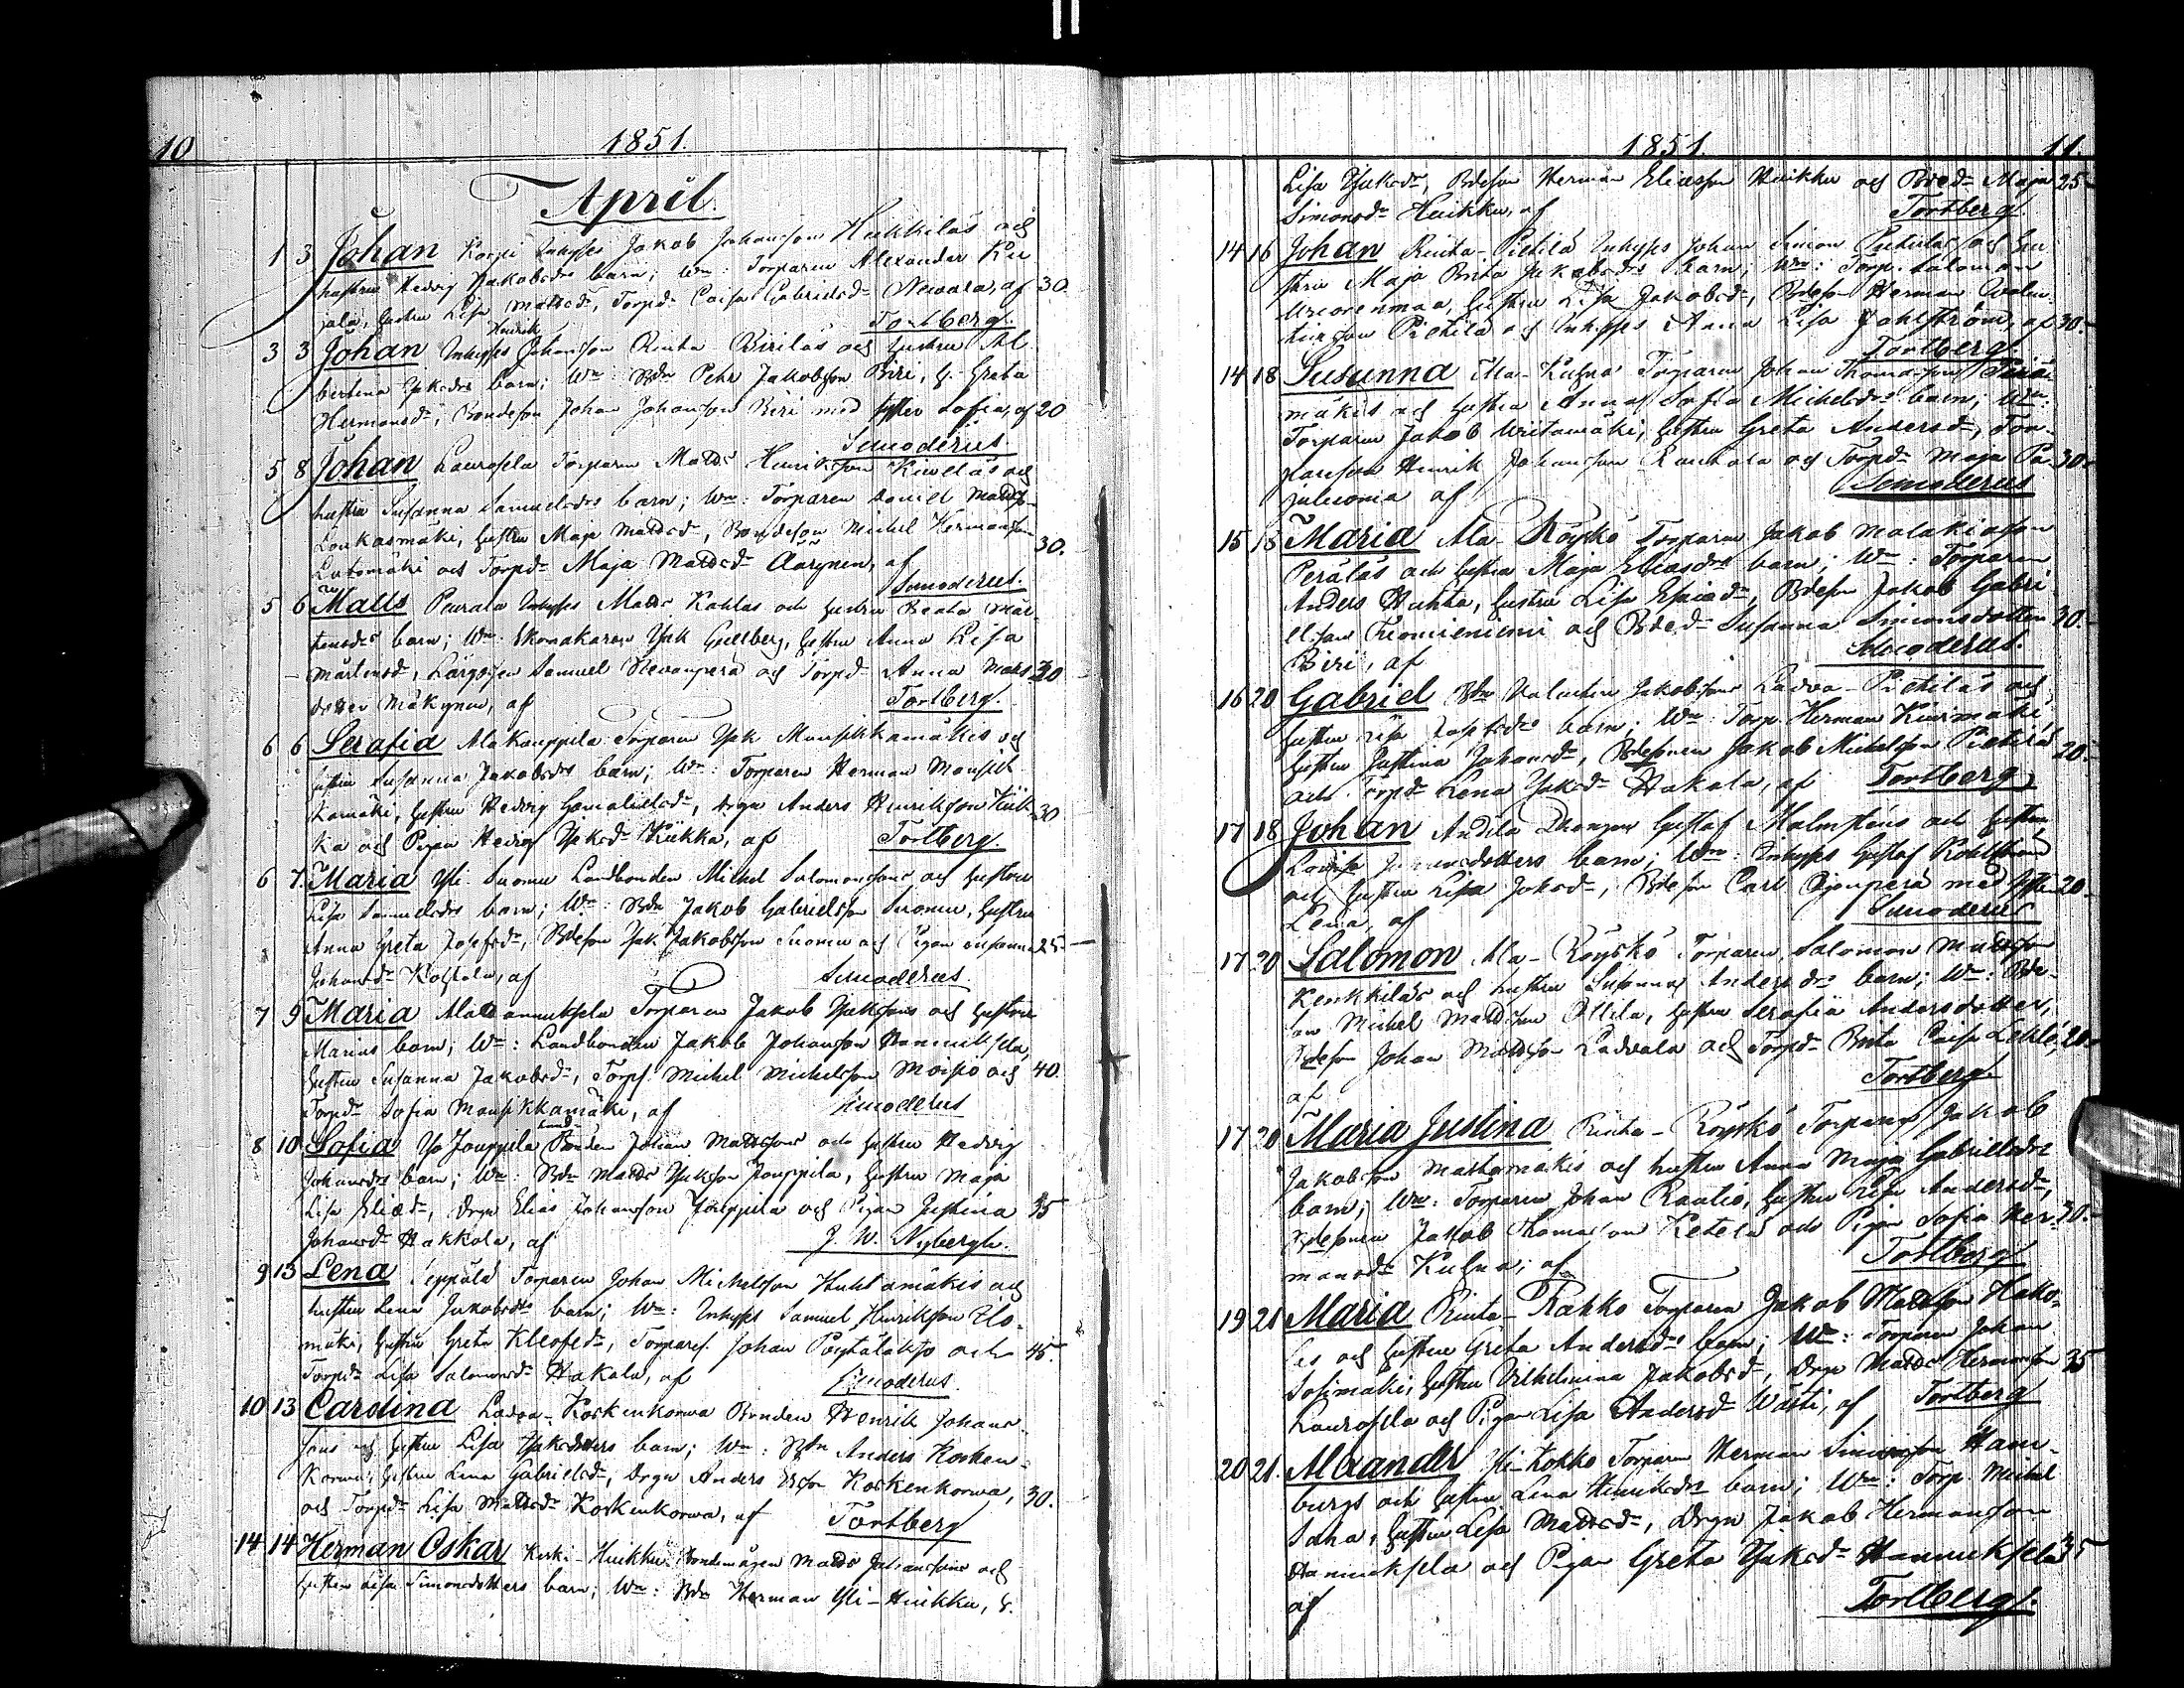 10 1851.
April.
1 3 Johan Korpi Inhyses Jakob Johansson Hukkilas och
hustrus Hedvig Jakobsdrs barn; Wn: Torparen Alexander Ku
jala, hustru Lisa Mattsdr, Torpdr Caisa Gabrielsdr Newala, af 30.
Tortberg.
Henrik
3 3 Johan Inhyses Johansson Rinta-Birilas och hustru Al
bertina Jakdrs barn; Wn: Bdn Petr Jakobsson Biri, h. Greta
Hermansdr, Bondeson Johan Johansson Biri med syster Sofia, af 20
Simoderus.
5 8 Johan Laurosela Torparen Matts Henriksson Kiwelas och
hustru Susanna Samuelsdrs barn; Wn: Torparen Daniel Mattsson
Loukasmäki, hustru Maja Mattsdr, Bondeson Michel Hermansson
30.
Luhomäki och Torpdr Maja Mattsdr Aarynen, af
Simoderus.
5 6 Matts Peurala Inhyses Matts Kahlas och hustru Beata Mår
tensdrs barn; Wn: Skomakaren Jak Gellberg, hustru Anna Lisa
Mårtensd, Lärgossen Samuel Newanperä och Torpdr Anna Matts 20
dotter Mäkynen, af Tortberg.
6 6 Serafia Ala Kauppila Torparen Jak Mansikkamäkis och
hustru Susanna Jakobsdrs barn; Wn: Torparen Herman Mansik
kamäki, hustru Hedvig Gamalielsdr, Drgn Anders Henriksson Kiik 30
ka och Pigan Hedvig Jakdr Kiikka, af Tortberg.
6 7. Maria Yli-Luomu Landbonden Michel Salomonssons och hustru
Lisa Samuelsdrs barn; Wn: Bdn Jakob Gabrielsson Luomu, hustru
Anna Greta Josefsdr, Bdeson Jak Jakobsson Luomu och Pigan Susanna 25-
Johansdr Koskela, af Simoderus.
7 9 Maria Ala Hannuksela Torparen Jakob Jaksons och hustru
Marias barn; Wn: Landbonden Jakob Johansson Hannuksela,
hustru Susanna Jakobsdr, Torps. Michel Michelsson Moisio och 40.
Torpdr Sofia Mansikkamäki, af Simoderus
Land
8 10 Sofia Yr Jouppila Bonden Johan Mattssons och hustru Hedvig
Johansdrs barn; Wn: Bdn Matts Jakson Jouppila, hustru Maja
Lisa Eliædr, Drgn Elias Johansson Jouppila och Pigan Justina 35
Johansdr Hakkola, af J. W. Nybergh.
9 13 Lena Seppälä Torparen Johan Michelsson Huhtamäkis och
hustru Lena Jakobsdrs barn; Wn: Inhyses Samuel Henriksson Elo-
mäki, hustru Greta Kleofædr, Torpares. Johan Poytälakso och 45.
Torpdr Lisa Salomonsdr Hakala, af Simoderus.
10 13 Carolina Ladva-Koskenkorwa Bonden Henrik Johans-
sons och hustru Lisa Jaksdotters barn; Wn: Bdn Anders Kosken-
korwa, hustru Lena Gabrielsdr, Drgn Anders Ersson Koskenkorwa,
och Torpdr Lisa Mattsdr Koskenkorwa, af 30.
Tortberg
14 14 Herman Oskar Keski-Huikku Bondemågen Matts Johanssons och
hustru Lisa Simonsdotters barn; Wn: Bdn Herman Yli-Huikku, h.
1851. 11.
Lisa Jakdr, Bdeson Herman Eliasson Huikku och Bdedr Maja 25-
Simonsdr Huikku, af Tortberg.
14 16 Johan Rinta-Pietilä Inhyses Johan Simon Pietilas och hu
strus Maja Brita Jakobsdrs barn; Wn: Torp. Salomon
Wuorenmaa, hustru Lisa Jakobsdr, Bdeson Herman Valen-
tinsson Pietilä och Inhyses Anna Lisa Johlström, af 30-
Tortberg
14 18 Susanna Ala-Kuhna Torparen Johan Thomasson Perä-
mäkis och hustru Anna Sofia Michelsdrs barn; Wn:
Torparen Jakob Wiitamäki, hustru Greta Andersdr, Tor-
parson Henrik Johansson Rantala och Torpdr Maja Pa- 30-
juluoma af Simoderus
15 18 Maria Ala-Röyskö Torparen Jakob Malakiasson
Perälas och hustru Maja Eliasdrs barn; Wn: Torparen
Anders Huhta, hustru Lisa Esaiædr, Bdeson Jakob Gabri
elsson Tuomieniemi och Bdedr Susanna Simonsdotter 30.-
Biri, af Simoderus.
16 20 Gabriel Bdn Valentin Jakobssons Ladva-Pietilas och
hustru Lisa Josefsdrs barn; Wn: Torp. Herman Kiwimäki,
hustru Justina Johansdr, Bdesonen Jakob Michelsson Pietilä 20.-
och Torpdr Lena Jaksdr Hakala, af Tortberg
17 18 Johan Andila Drengen Gustaf Malmsténs och hustru
Lovisa dotters barn; Wn: Inhyses Gustaf Kohlström
och hustru Lisa Jaksdr, Bdeson Carl Ojanperä med syster 20-
Lena, af Simoderus
17 20 Salomon Ala-Röyskö Torparen Salomon Mattsson
Kenkkilas och hustru Susanna Andersdrs barn; Wn: Bde-
son Michel Mattsson Ollila, hustru Serafia Andersdotter,
Bdeson Johan Mattsson Ladvala och Torpdr Brita Caisa Lehto, 20-
af Tortberg
17 20 Maria Justina Rinta-Röyskö Torparen Jakob
Jakobsson Mattomäkis och hustru Anna Maja Gabrielsdrs
barn; Wn: Torparen Johan Rautio, hustru Lisa Andersdr,
Bdesonen Jakob Thomasson Ketelä och Pigan Sofia Her- 20.-
mansdr Kuhna; af Tortberg
19 21 Maria Rinta-Rahko Torparen Jakob Mattsson Hako-
las och hustru Greta Andersdrs barn; Wn: Torparen Johan
Sosimäki, hustru Vilhelmina Jakobsdr, Drgn Matts Hermansson 35
Laurosela och Pigan Lisa Andersdr Wasti, af Tortberg
20 21. Alexander Yli-Kokko Torparen Herman Simonsson Ham-
burgs och hustru Lena Henriksdrs barn; Wn: Torp. Michel
Saha, hustru Lisa Mattsdr, Drgn Jakob Hermansson
Hannuksela och Pigan Greta Jaksdr Hannuksela 35
af Tortberg.